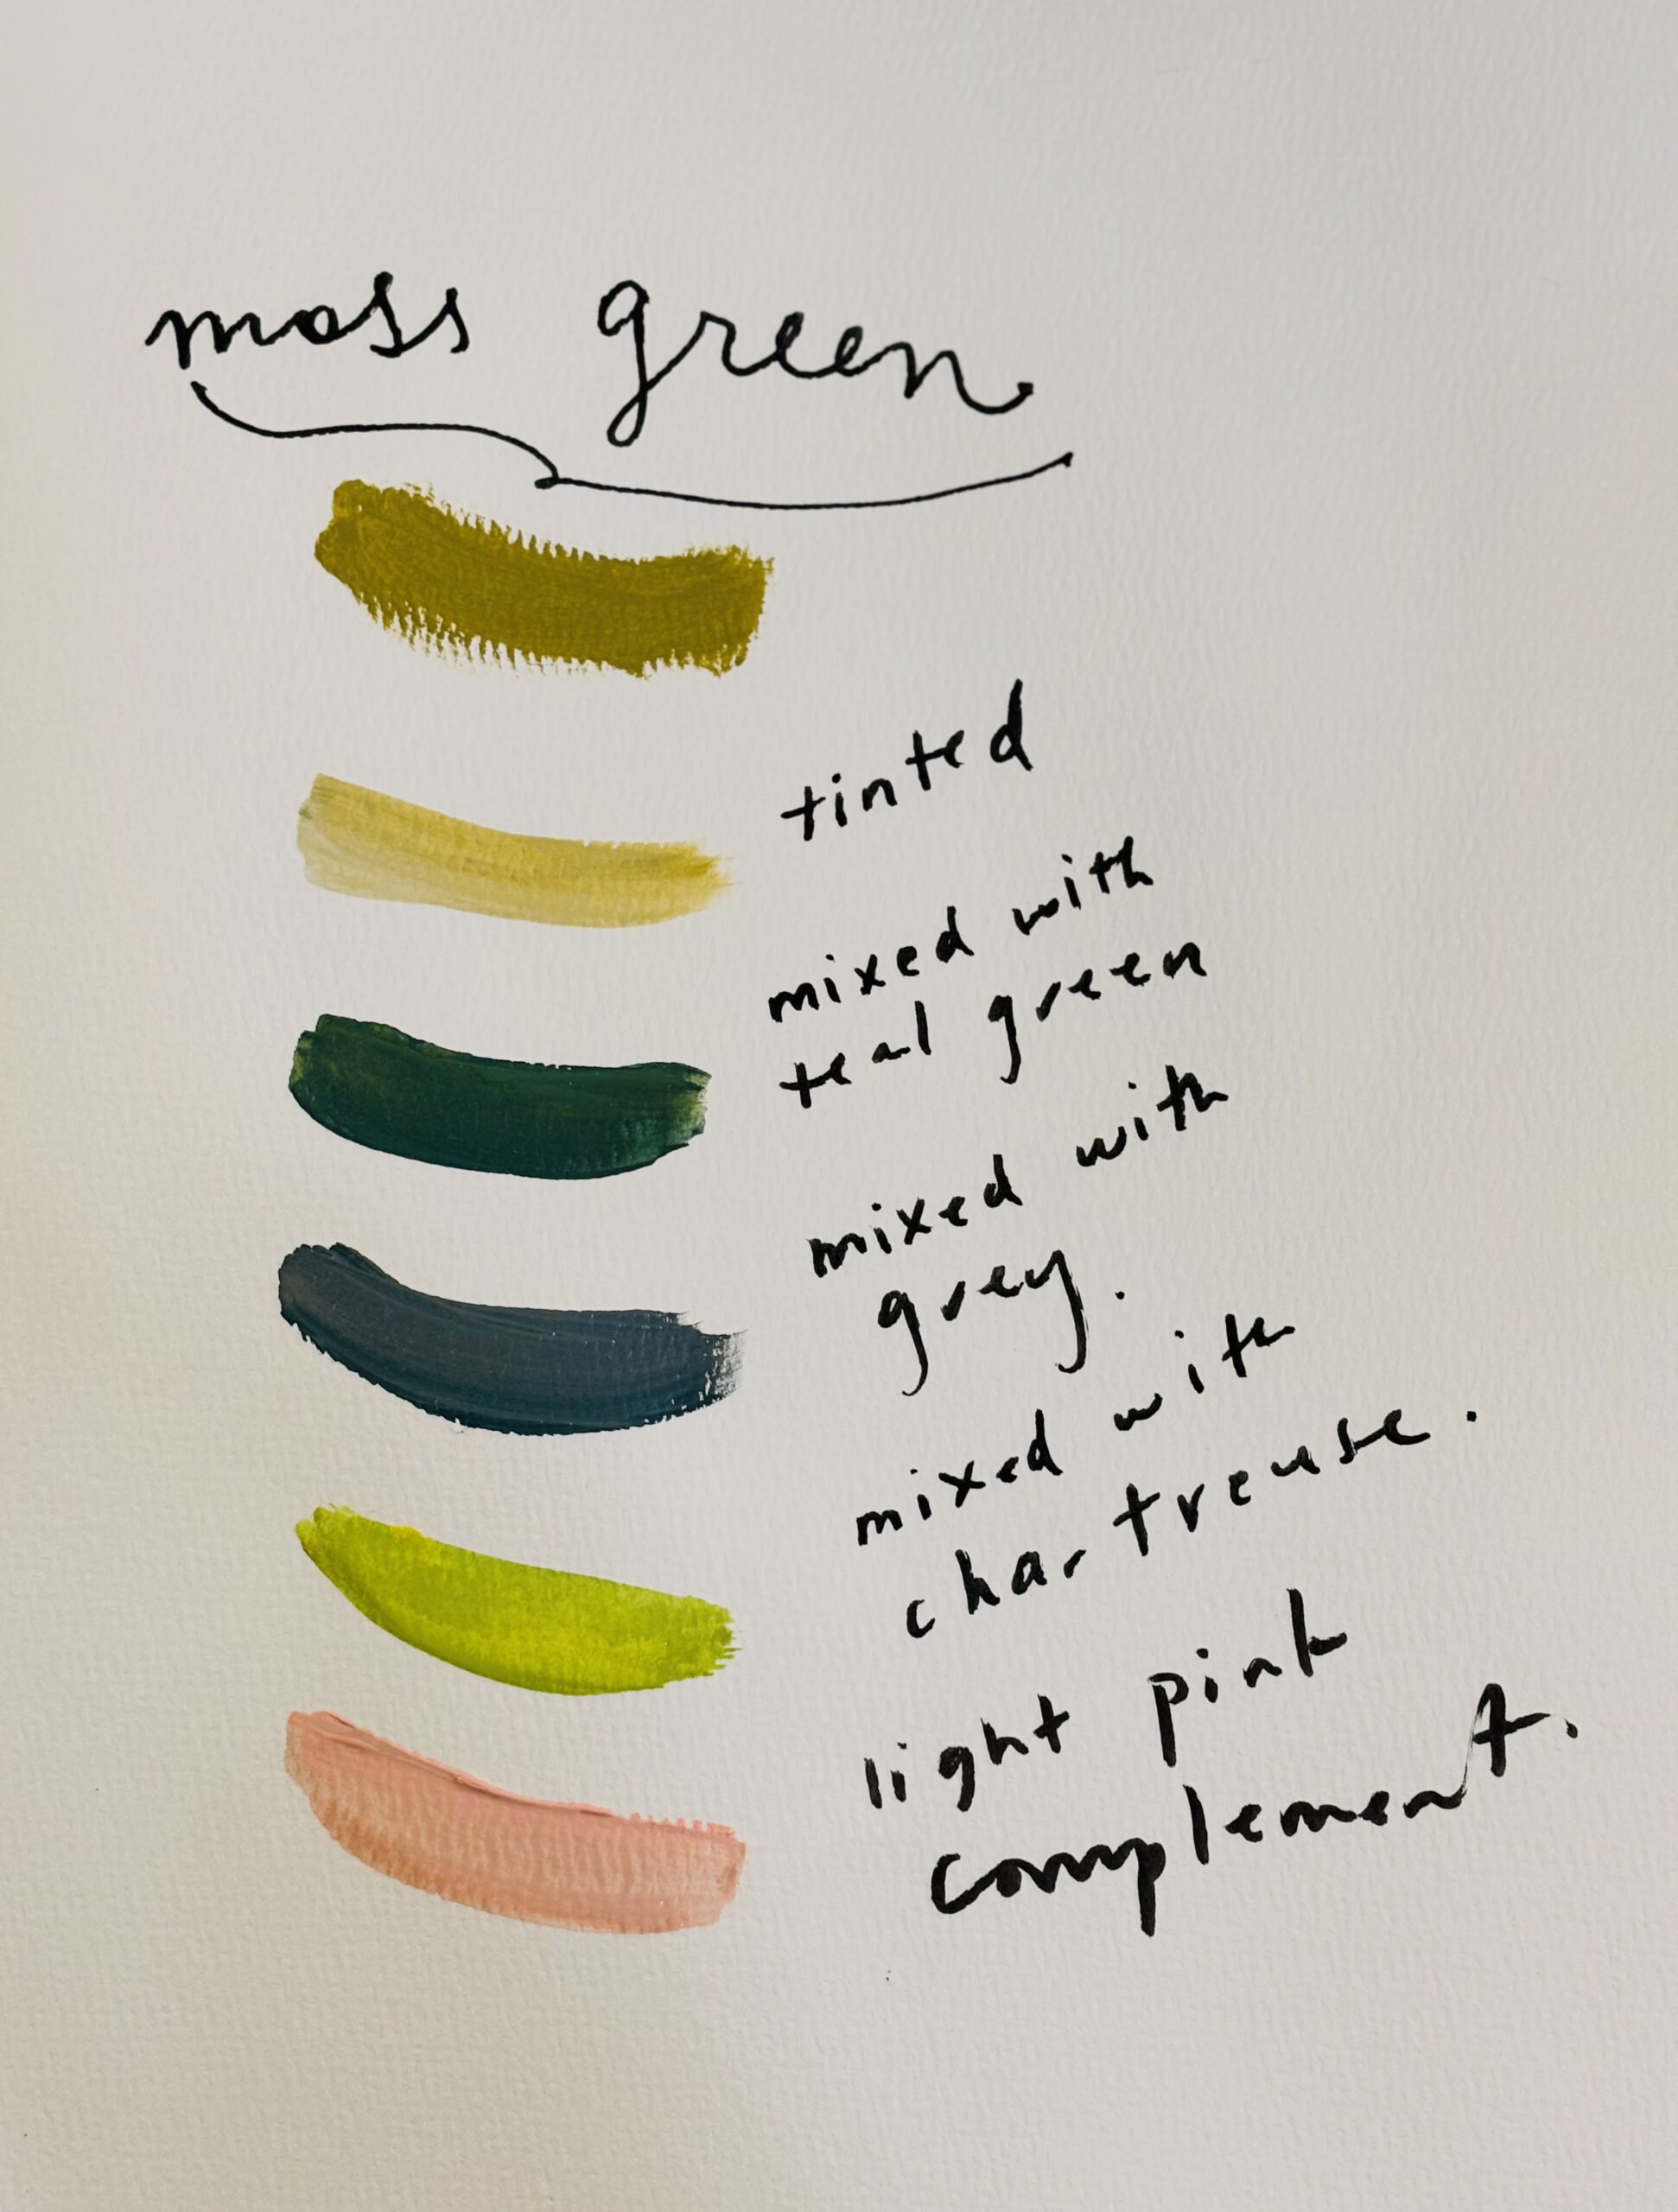 moss green
tinted
mixed with
teal green
mixed with
grey.
mixed with
chartreuse.
light pink
complement.